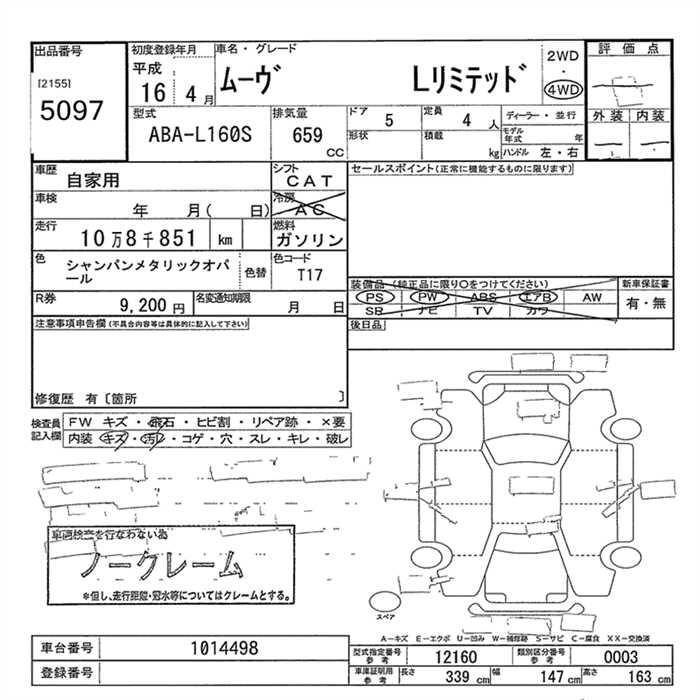 出品番号
[2155]
5097
初度登録年月
平成
16 4 月
車名・グレード
ムーヴ Lリミテッド
2WD
・
4WD
評価点
外装 内装
型式
ABA-L160S
排気量
659
CC
ドア 5
定員 4 人
形状
積載 kg
ディーラー・並行
モデル年式 年
ハンドル 左・右
車歴 自家用
シフト
CAT
車検 年 月( 日)
冷房
AC
走行
10万8千851 km
燃料
ガソリン
色
シャンパンメタリックオパール
色替
色コード
T17
R券 9,200 円
名変通知期限 月 日
セールスポイント(正常に機能するものに限ります)
装備品 (純正品に限り○をつけてください)
PS PW ABS エアB AW
SR ナビ TV カワ
新車保証書
有・無
後日品
注意事項申告欄(不具合内容等は具体的に記入して下さい)
修復歴 有〔箇所 〕
検査員記入欄
FW キズ・飛石・ヒビ割・リペア跡・×要
内装・キズ・汚レ・コゲ・穴・スレ・キレ・破レ
車両検査を行なわない為
ノークレーム
*但し、走行距離・冠水等についてはクレームとする。
スペア
A-キズ E-エクボ U-凹み W-補修跡 S-サビ C-腐食 XX-交換済
車台番号 1014498
登録番号
型式指定番号参考 12160
類別区分番号参考 0003
車庫証明用参考 長さ 339 cm 幅 147 cm 高さ 163 cm